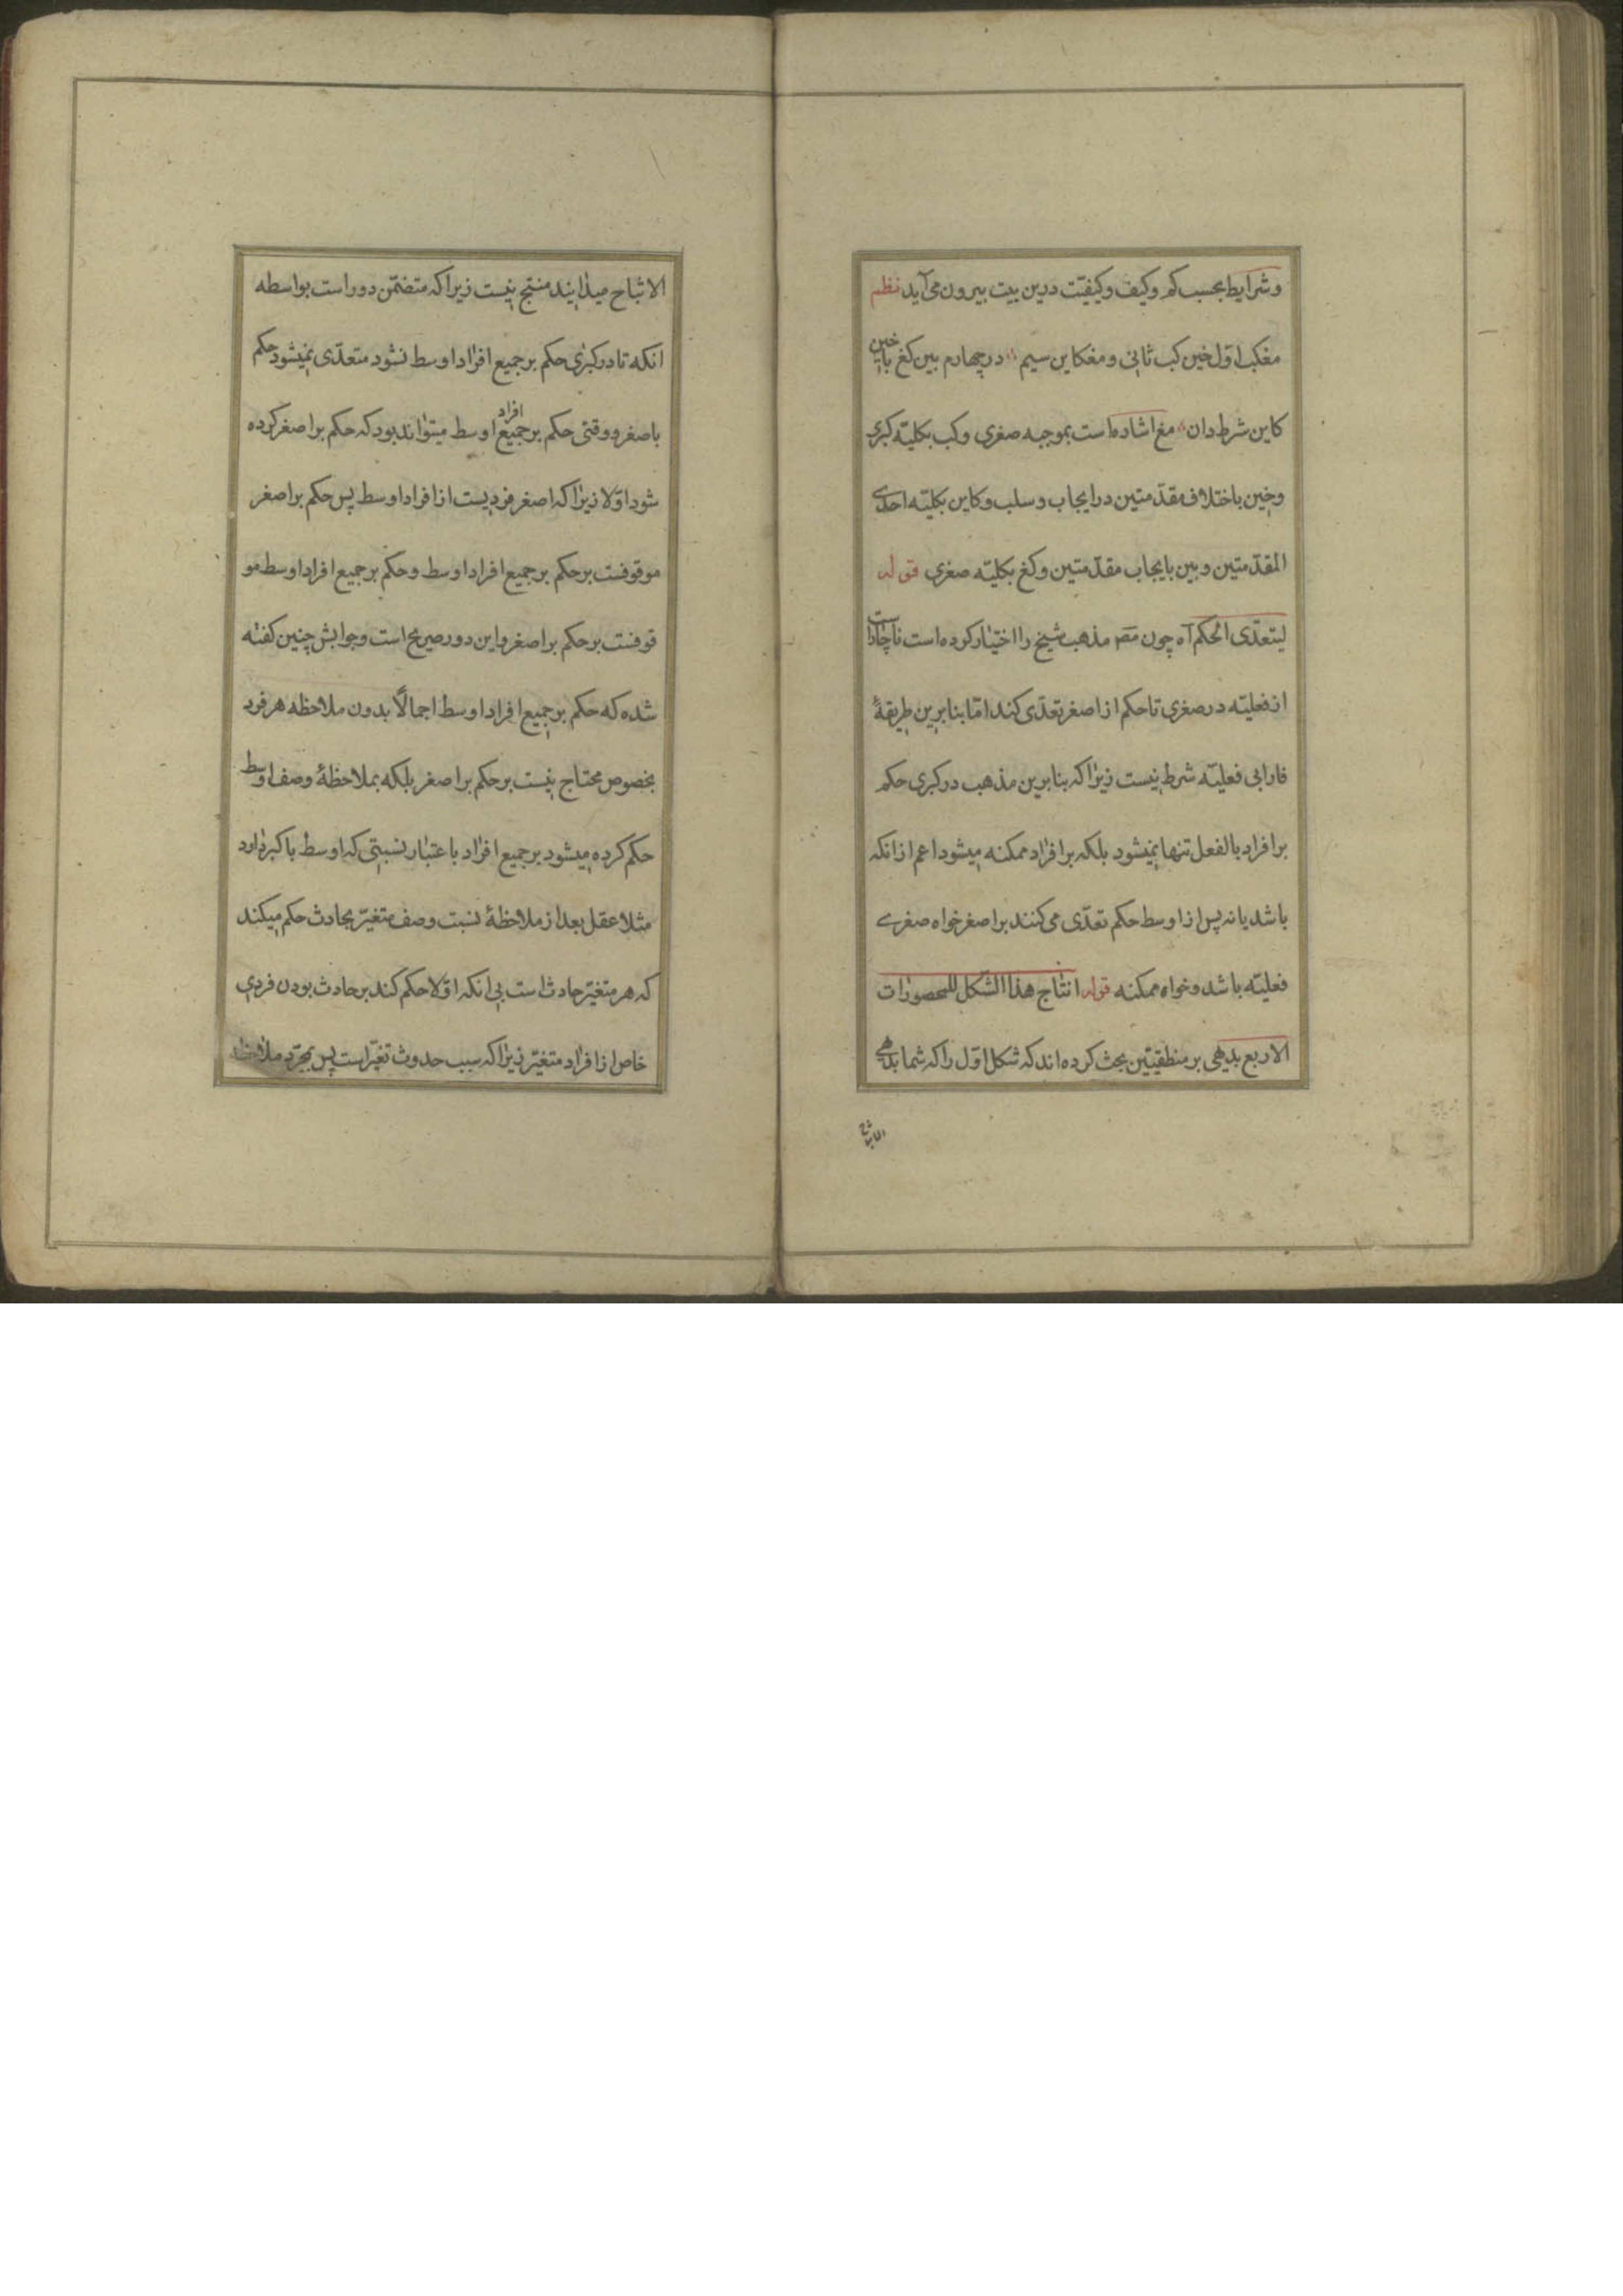 وشرایط بحسب کم وکیف وکیفیّت درین بیت بیرون می آید نظم
مغکب اوّل خین کب ثانی ومغکاین سیم در چهارم بین کغ یا خین
کاین شرط دان مغ اشاده است بموجبه صغری وکب بکلیّه کبری
وخین باختلاف مقدّمتین در ایجاب وسلب وکاین بکلیّه احدی
المقدّمتین وبین بایجاب مقدّمتین وکغ بکلیّه صغری قوله
لیتعدّی الحکم آه چون مصر مذهب شیخ را اختیار کرده است ناچار است
از فعلیّه در صغری تا حکم از اصغر تعدّی کند امّا بنا برین طریقهٔ
فارابی فعلیّه شرط نیست زیرا که بنا برین مذهب در کبری حکم
بر افراد بالفعل تنها نمیشود بلکه بر افراد ممکنه میشود اعم از انکه
باشد یا نه پس از اوسط حکم تعدّی می کنند بر اصغر خواه صغری
فعلیّه باشد وخواه ممکنه قوله انتاج هذا الشکل للمحصورات
الاربع بدیهی بر منطقیّین بحث کرده اند که شکل اوّل را که شما بدیهی
الانتاج
الانتاج میدانید منتج نیست زیرا که متضمّن دور است بواسطه
انکه تا در کبری حکم بر جمیع افراد اوسط نشود متعدّی نمیشود حکم
باصغر ووقتی حکم بر جمیع افراد اوسط میتواند بود که حکم بر اصغر کرده
شود اوّلا زیرا که اصغر فردیست از افراد اوسط پس حکم بر اصغر
موقوفست بر حکم بر جمیع افراد اوسط وحکم بر جمیع افراد اوسط مو
قوفست بر حکم بر اصغر واین دور صریح است وجوابش چنین کفته
شده که حکم بر جمیع افراد اوسط اجمالًا بدون ملاحظه هر فرد
بخصوص محتاج نیست بر حکم بر اصغر بلکه بملاحظهٔ وصف اوسط
حکم کرده میشود بر جمیع افراد باعتبار نسبتی که اوسط باکبر دارد
مثلا عقل بعد از ملاحظهٔ نسبت وصف متغیّر بحادث حکم میکند
که هر متغیّر حادث است بی انکه اوّلا حکم کند بر حادث بودن فردی
خاص از افراد متغیّر زیرا که سبب حدوث تغیّر است پس بمجرّد ملاحظه